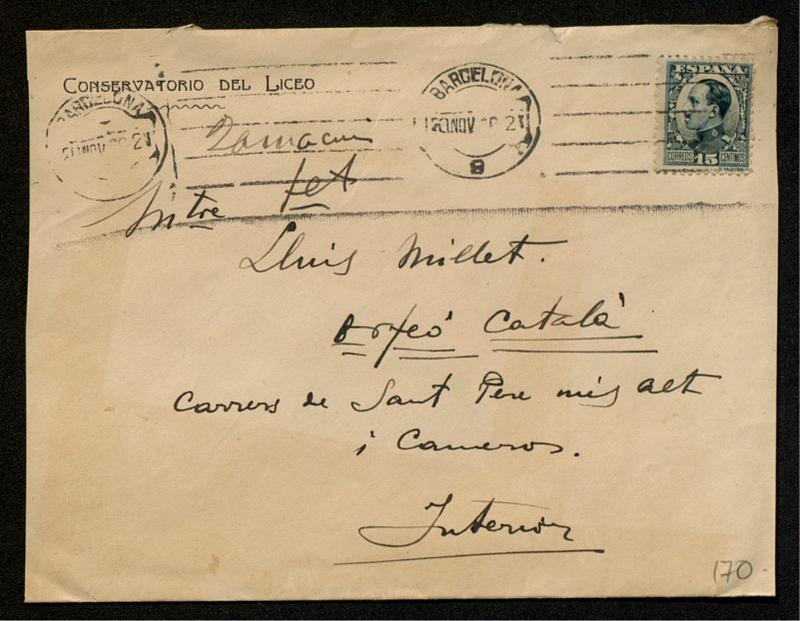 Conservatorio del Liceo
BARCELONA
NOV
BARCELONA
NOV
8
ESPAÑA
CORREOS 15 CENTIMOS
fet
Mtre
Lluis Millet.
Orfeó Català
Carrers de Sant Pere més alt
i Cameros.
Interior
170